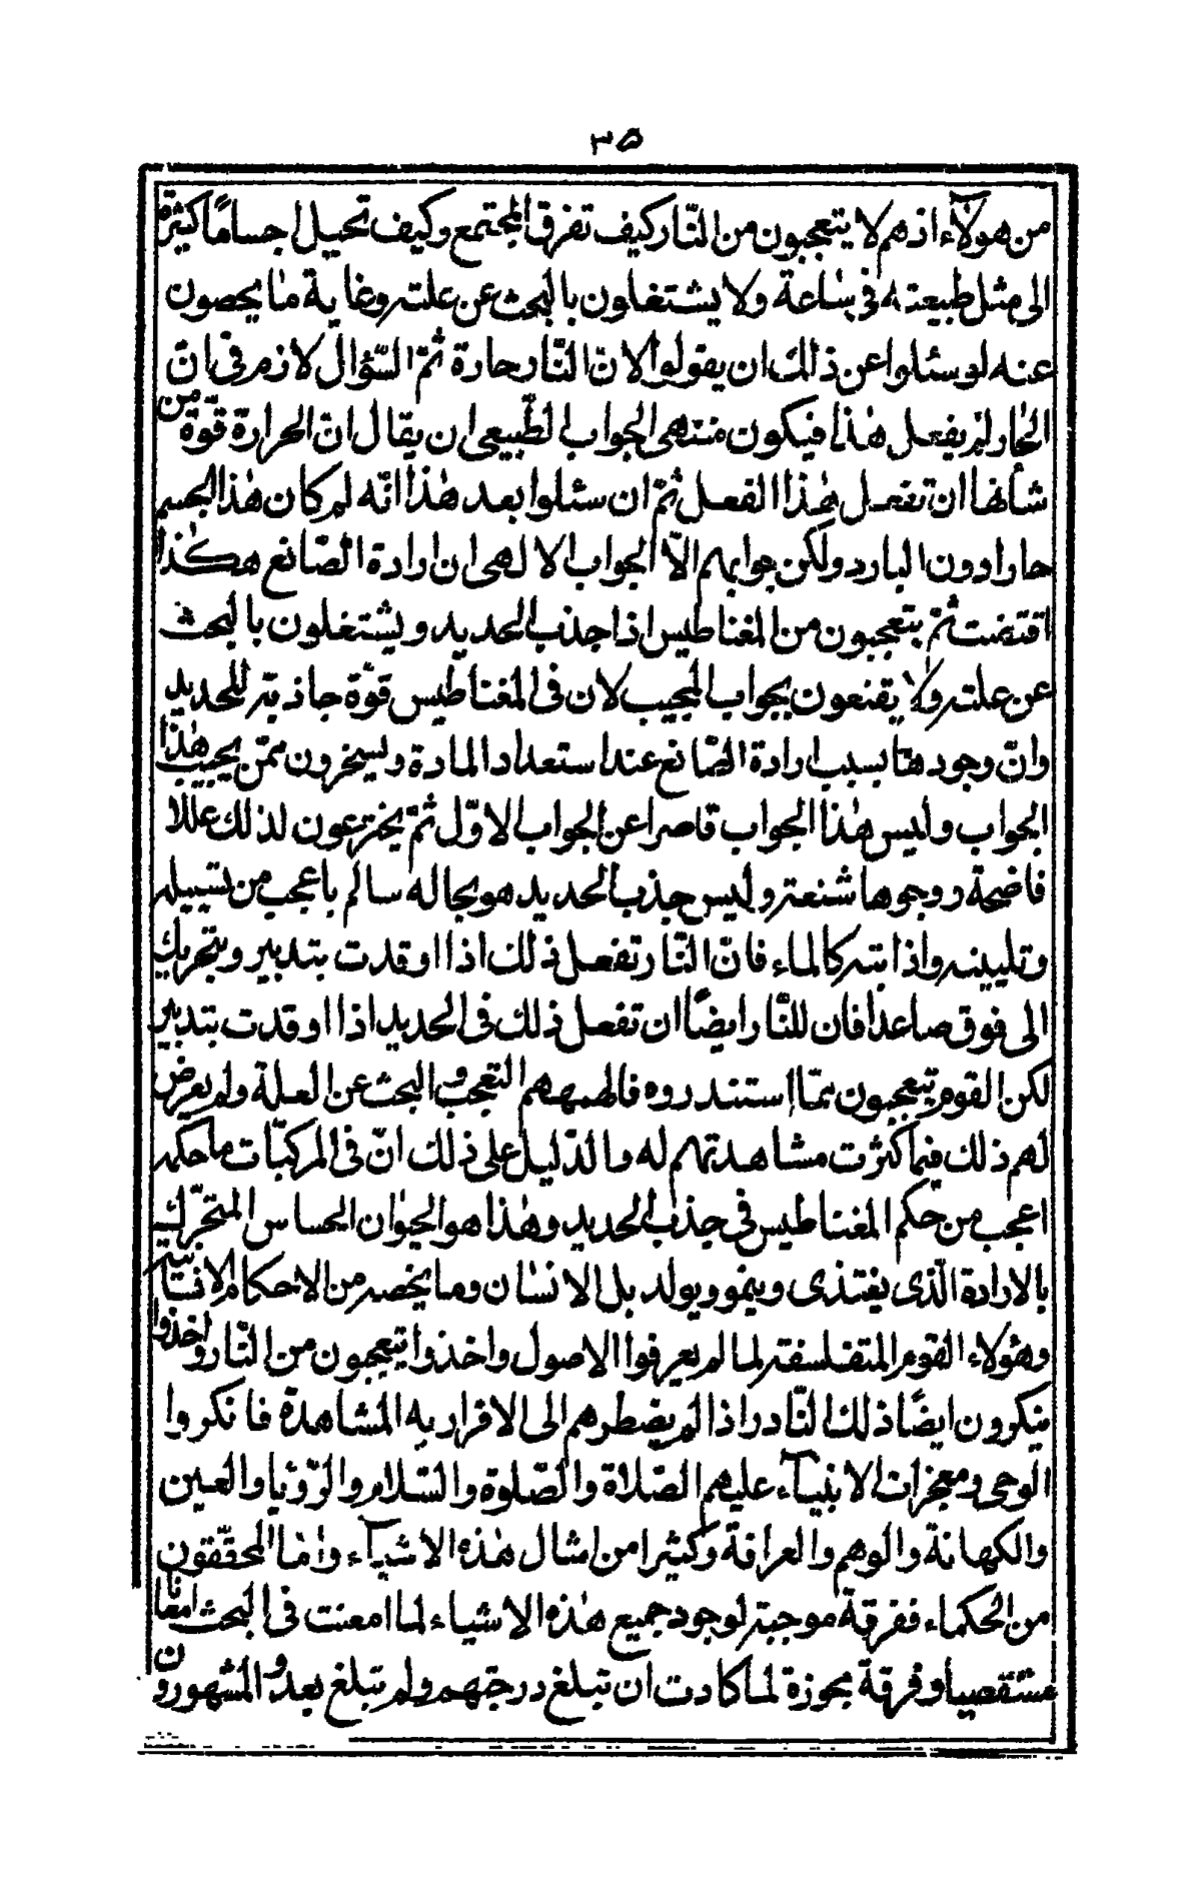 ٣۵
من هولآء اذ هم لا يتعجبون من النّار كيف تفرق المجتمع وكيف تحيل اجسامًا كثيرة
الى مثل طبيعته فى ساعة ولا يشتغلون بالبحث عن علته وغاية ما يحصون
عنه لو سئلوا عن ذلك ان يقولوا لان النّار حارة ثمّ السّؤال لازم فى انّ
الحار لم يفعل هذا فيكون منتهى الجواب الطّبيعى ان يقال انّ الحرارة قوّة من
شأنها ان تفعل هذا الفعل ثمّ ان سئلوا بعد هذا انّه لم كان هذا الجسم
حارا دون البارد ولكن جوابهم الّا الجواب الالهى ان ارادة الصّانع هكذا
اقتضت ثمّ يتعجبون من المغناطيس اذا جذب الحديد ويشتغلون بالبحث
عن علته ولا يقنعون بجواب المجيب لان فى المغناطيس قوّة جاذبة للحديد
وانّ وجودها بسبب ارادة الصّانع عند استعداد المادة ويسخرون ممّن يجيب هذا
الجواب وليس هذا الجواب قاصرا عن الجواب الاوّل ثمّ يخترعون لذلك عللا
فاضحة روجوها شنعة وليس جذب الحديد هو بحاله سالم باعجب من تسييله
وتليينه واذابته كالماء فانّ النّار تفعل ذلك اذا اوقدت بتدبير وبتحريك
الى فوق صاعدا فان للنّار ايضًا ان تفعل ذلك فى الحديد اذا اوقدت بتدبير
لكن القوم يتعجبون ممّا استندروه فالهمهم التعجب والبحث عن العلة ولم يعرض
لهم ذلك فيما كثرت مشاهدتهم له والدّليل على ذلك انّ فى المركبّات ما حكمه
اعجب من حكم المغناطيس فى جذب الحديد وهذا هو الحيوان الحساس المتحرّك
بالارادة الّذى يغتذى وينمو ويولد بل الانسان وما يخصه من الاحكام الانسانية
وهؤلاء القوم المتفلسفة لما لم يعرفوا الاصول واخذوا يتعجبون من النّار واخذوا
ينكرون ايضًا ذلك النّادر اذا لم يضطرهم الى الاقرار به المشاهدة فانكروا
الوحى ومعجزات الانبيآء عليهم الصّلاة والصّلوة والسّلام والرّؤيا والعين
والكهانة والوهم والعرافة وكثيرا من امثال هذه الاشيآء وامّا المحقّقون
من الحكماء ففرقة موجبة لوجود جميع هذه الاشياء لما امعنت فى البحث امعانا
مستقصيا وفرقة مجوزة لما كادت ان تبلغ درجتهم ولم تبلغ بعد والمشهورون